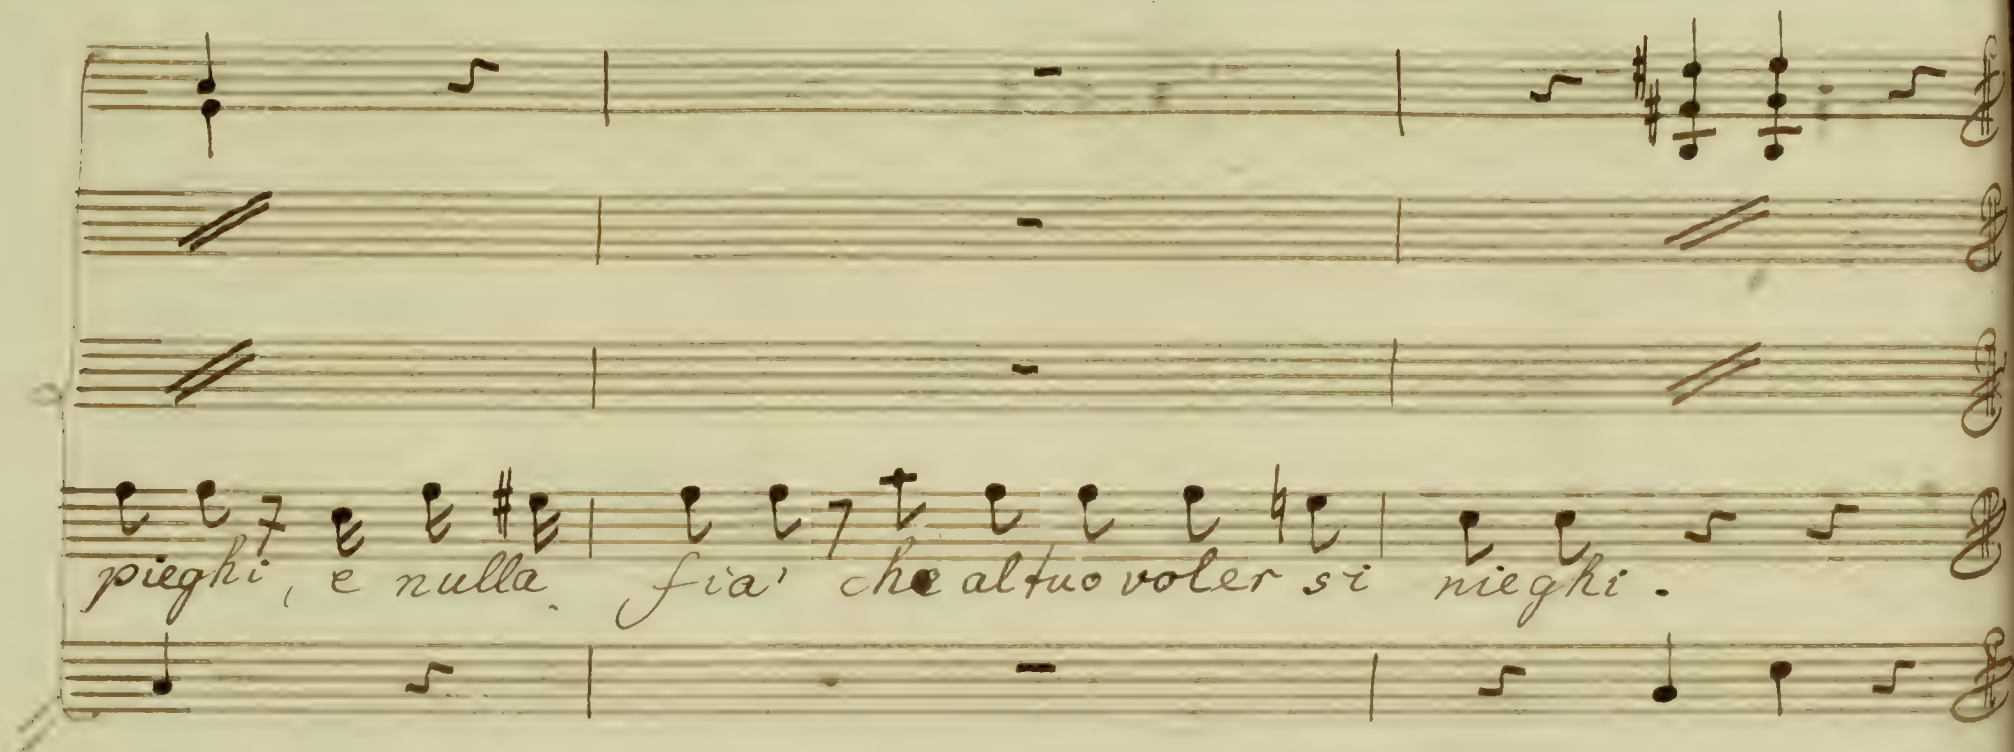 pieghi, e nulla fia' che al tuo voler si nieghi.